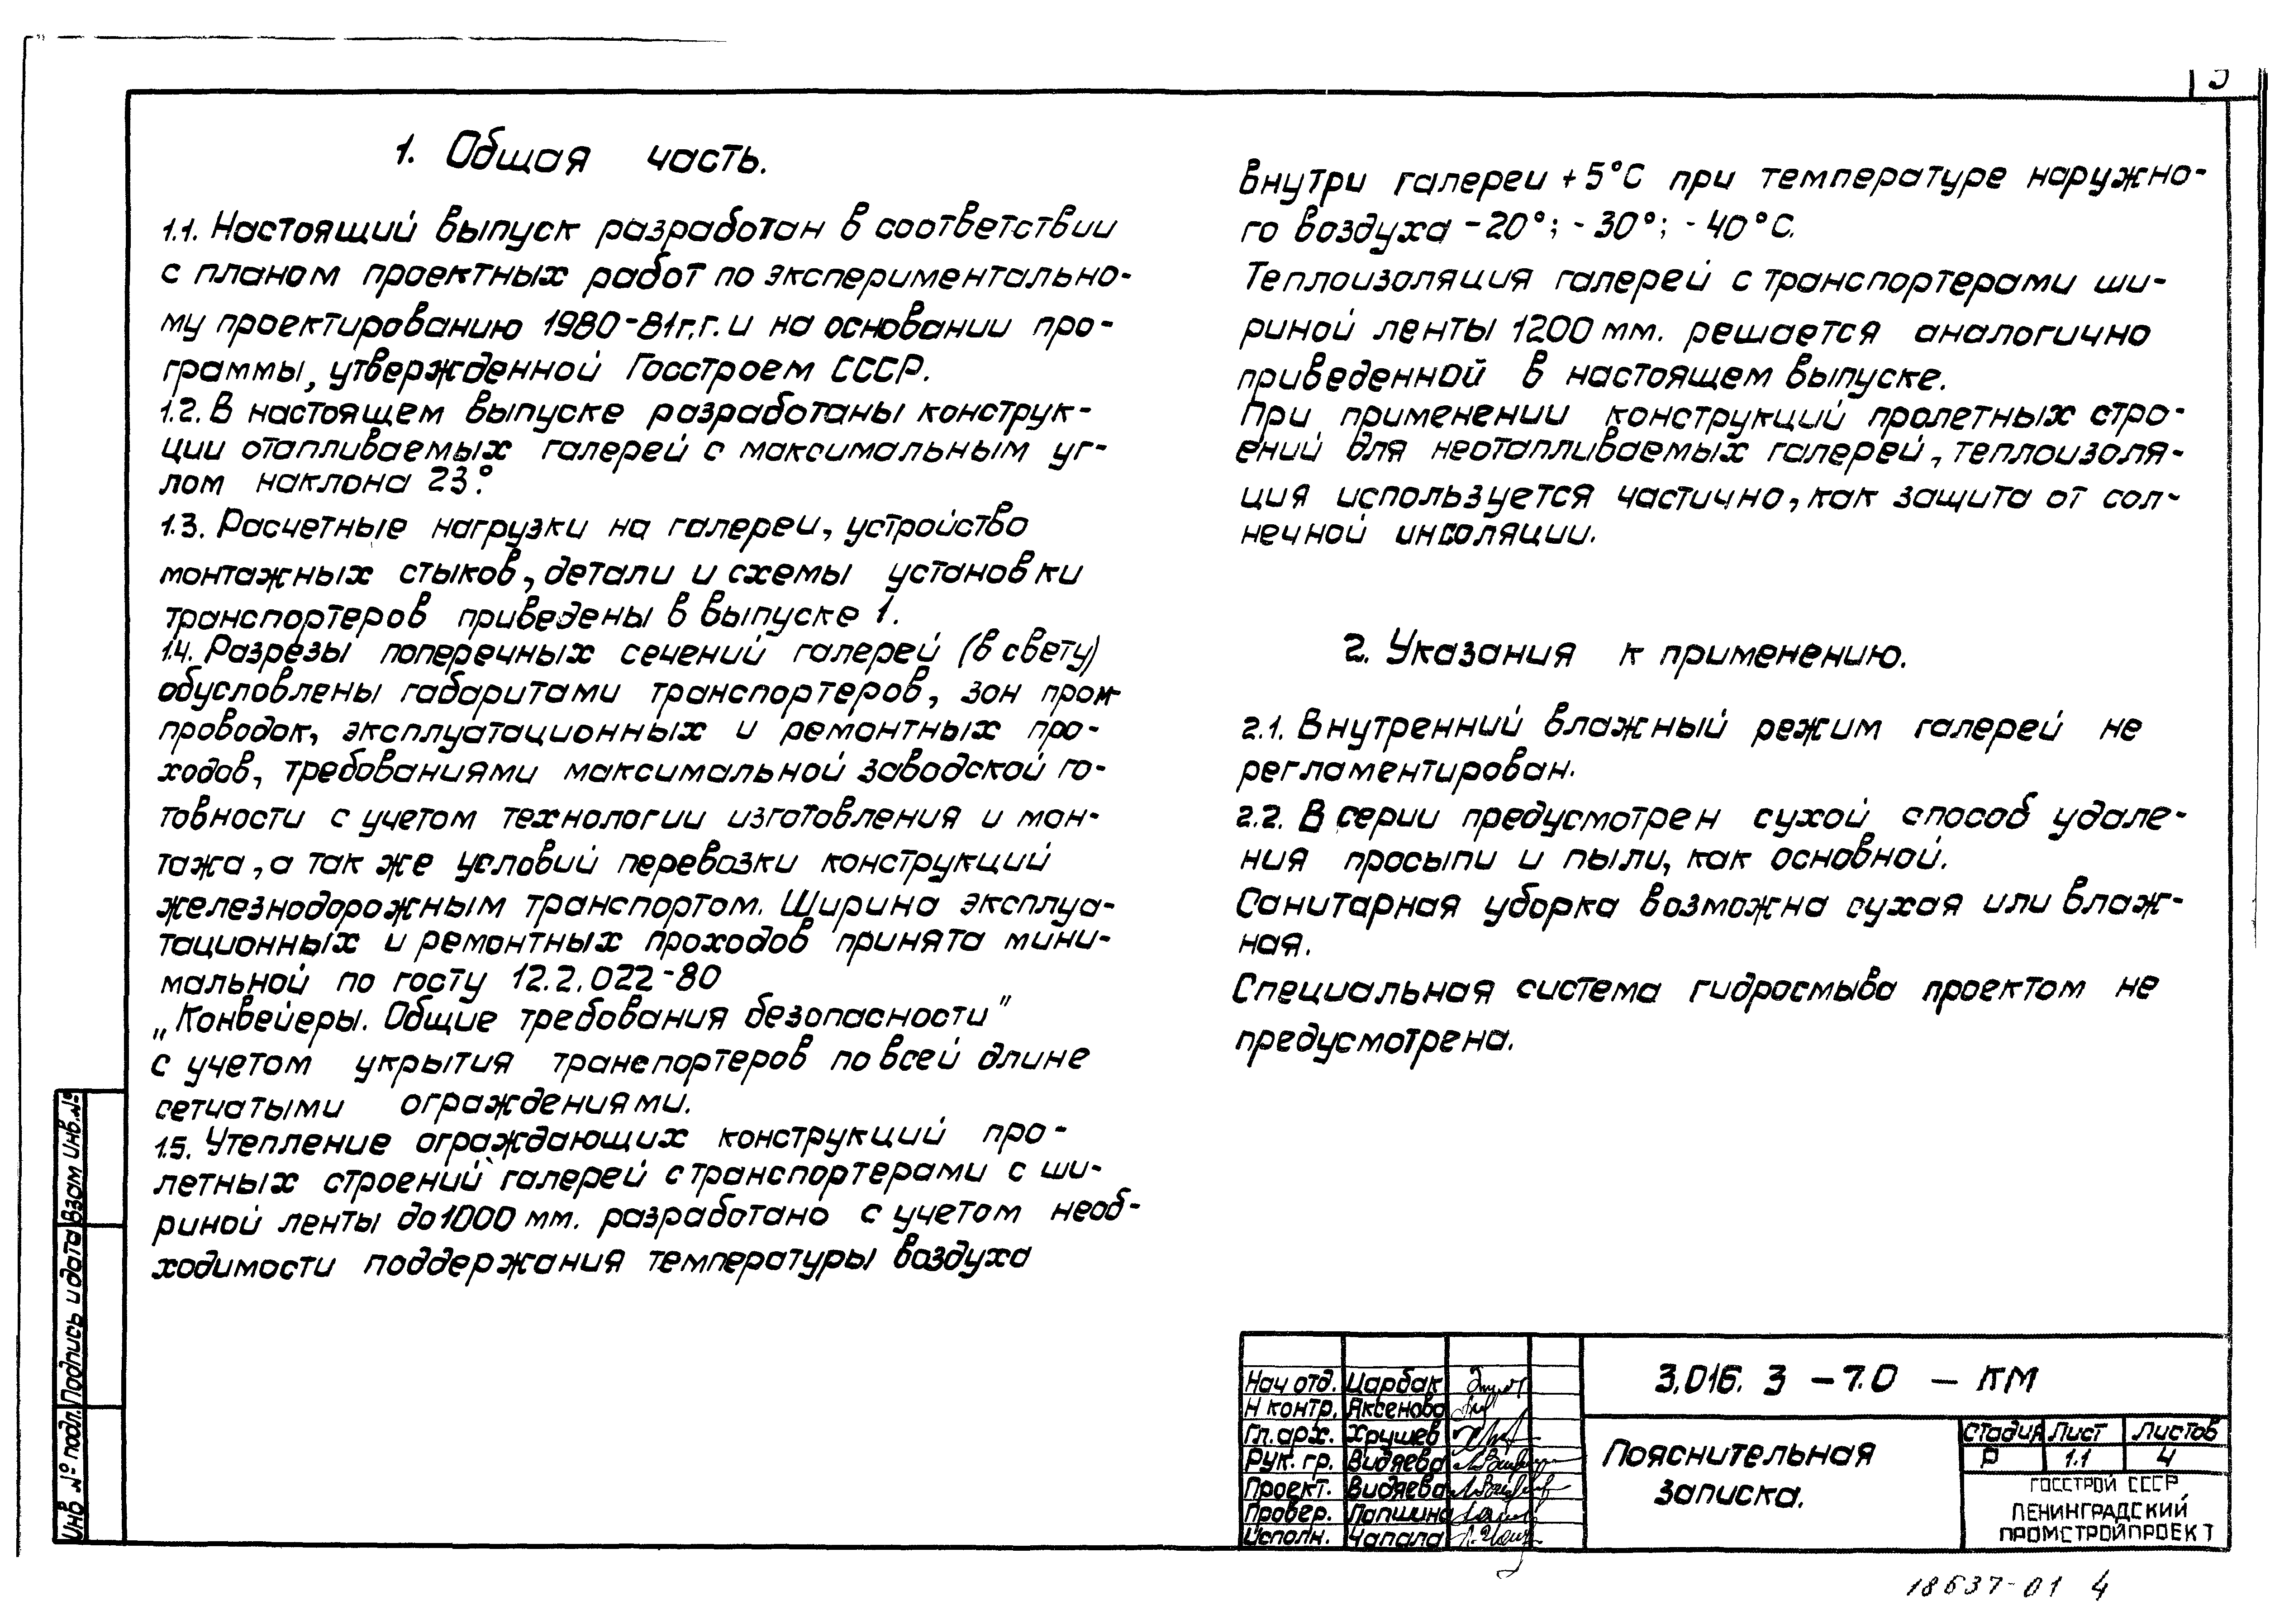 1. Общая часть.
1.1. Настоящий выпуск разработан в соответствии
с планом проектных работ по экспериментально-
му проектированию 1980-81г.г. и на основании про-
граммы, утвержденной Госстроем СССР.
1.2. В настоящем выпуске разработаны конструк-
ции отапливаемых галерей с максимальным уг-
лом наклона 23°.
1.3. Расчетные нагрузки на галереи, устройство
монтажных стыков, детали и схемы установки
транспортеров приведены в выпуске 1.
1.4. Разрезы поперечных сечений галерей (в свету)
обусловлены габаритами транспортеров, зон пром-
проводок, эксплуатационных и ремонтных про-
ходов, требованиями максимальной заводской го-
товности с учетом технологии изготовления и мон-
тажа, а так же условий перевозки конструкций
железнодорожным транспортом. Ширина эксплуа-
тационных и ремонтных проходов принята мини-
мальной по госту 12.2.022-80
„Конвейеры. Общие требования безопасности"
с учетом укрытия транспортеров по всей длине
сетчатыми ограждениями.
1.5. Утепление ограждающих конструкций про-
летных строений галерей с транспортерами с ши-
риной ленты до 1000 мм. разработано с учетом необ-
ходимости поддержания температуры воздуха
внутри галереи +5°С при температуре наружно-
го воздуха -20°; -30°; -40°С.
Теплоизоляция галерей с транспортерами ши-
риной ленты 1200 мм. решается аналогично
приведенной в настоящем выпуске.
При применении конструкций пролетных стро-
ений для неотапливаемых галерей, теплоизоля-
ция используется частично, как защита от сол-
нечной инсоляции.
2. Указания к применению.
2.1. Внутренний влажный режим галерей не
регламентирован.
2.2. В серии предусмотрен сухой способ удале-
ния просыпи и пыли, как основной.
Санитарная уборка возможна сухая или влаж-
ная.
Специальная система гидросмыва проектом не
предусмотрена.
Инв № подл. Подпись и дата Взам инв.№
Нач отд. Царбак
Н контр. Аксенова
Гл. арх. Хрущев
Рук. гр. Видяева
Проект. Видяева
Провер. Лапшина
Исполн. Чапала
3.016.3 -7.0 - КМ
Пояснительная
записка.
Стадия Лист Листов
Р 1.1 4
ГОССТРОЙ СССР
ЛЕНИНГРАДСКИЙ
ПРОМСТРОЙПРОЕКТ
18637-01 4